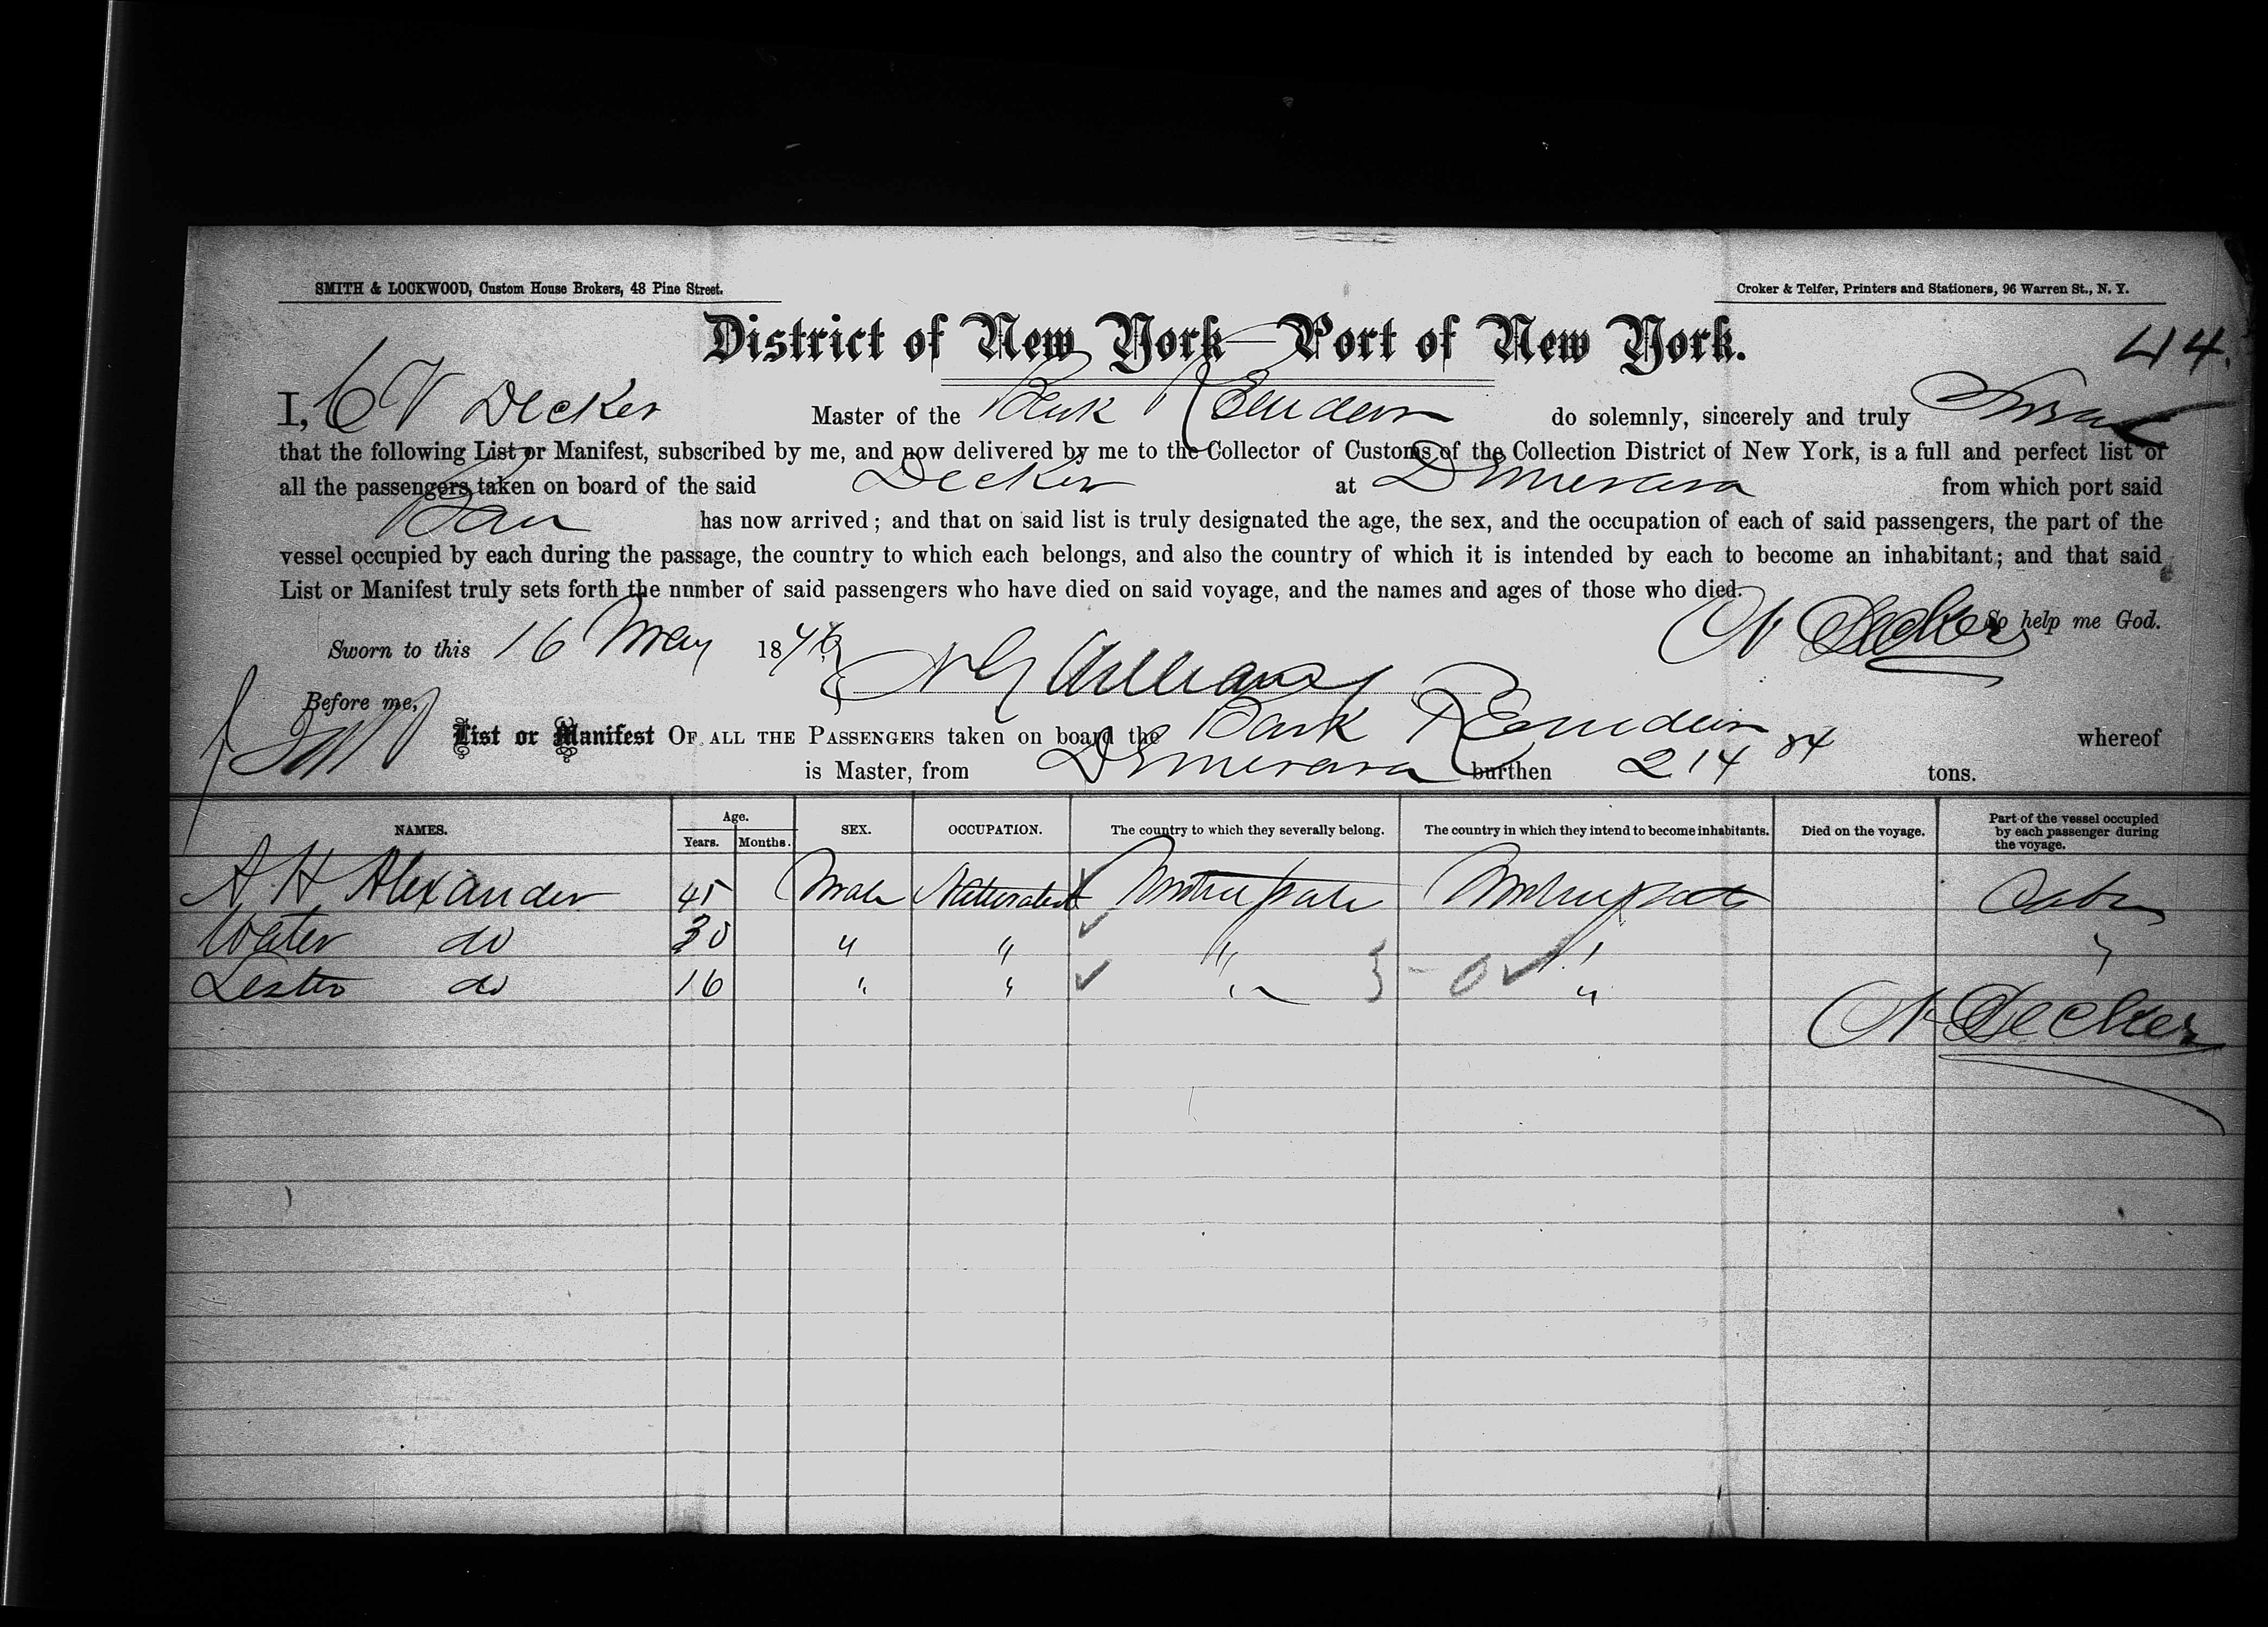 SMITH & LOCKWOOD, Custom House Brokers, 48 Pine Street.
Croker & Telfer, Printers and Stationers, 96 Warren St., N. Y.
District of New York—Port of New York.
44.
I, C V Decker Master of the Bark do solemnly, sincerely and truly Swear
that the following List or Manifest, subscribed by me, and now delivered by me to the Collector of Customs of the Collection District of New York, is a full and perfect list of
all the passengers taken on board of the said Decker at Demerara from which port said
Bark has now arrived; and that on said list is truly designated the age, the sex, and the occupation of each of said passengers, the part of the
vessel occupied by each during the passage, the country to which each belongs, and also the country of which it is intended by each to become an inhabitant; and that said
List or Manifest truly sets forth the number of said passengers who have died on said voyage, and the names and ages of those who died.
So help me God.
CV Decker
Sworn to this 16 May 18
Williams
Before me,
List or Manifest OF ALL THE PASSENGERS taken on board the Bark whereof
is Master, from Demerara burthen 214 84 tons.
NAMES. Age. Years. Months. SEX. OCCUPATION. The country to which they severally belong. The country in which they intend to become inhabitants. Died on the voyage. Part of the vessel occupied by each passenger during the voyage.
A H Alexander 45 Male Cabin
Water do 30 " " " " "
Lester do 16 " " " "
CV Decker